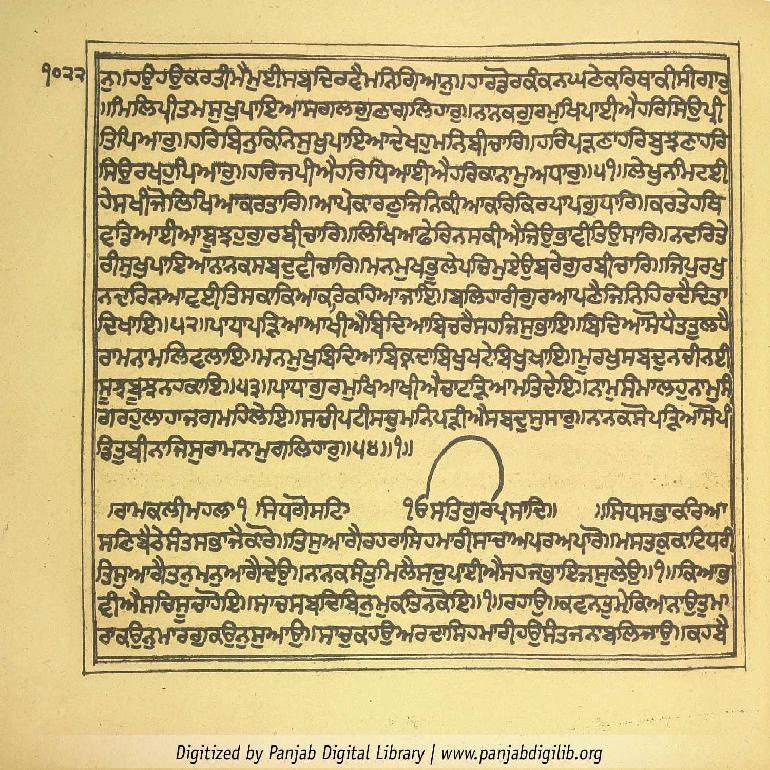 ੧੦੨੨
ਨੁ॥ਹਉਹਉਕਰਤੀਮੈਮੁਈਸਬਦਿਰਵੈਮਨਿਗਿਆਨੁ॥ਹਾਰਡੋਰਕੰਕਨਘਣੇਕਰਿਥਾਕੀਸੀਗਾਰੁ
॥ਮਿਲਿਪ੍ਰੀਤਮਸੁਖੁਪਾਇਆਸਗਲਗੁਣਾਗਲਿਹਾਰੁ॥ਨਾਨਕਗੁਰਮੁਖਿਪਾਈਐਹਰਿਸਿਉਪ੍ਰੀ
ਤਿਪਿਆਰੁ॥ਹਰਿਬਿਨੁਕਿਨਿਸੁਖੁਪਾਇਆਦੇਖਹੁਮਨਿਬੀਚਾਰਿ॥ਹਰਿਪੜਣਾਹਰਿਬੁਝਣਾਹਰਿ
ਸਿਉਰਖਹੁਪਿਆਰੁ॥ਹਰਿਜਪੀਐਹਰਿਧਿਆਈਐਹਰਿਕਾਨਾਮੁਅਧਾਰੁ॥੫੧॥ਲੇਖੁਨਮਿਟਈ
ਹੇਸਖੀਜੋਲਿਖਿਆਕਰਤਾਰਿ॥ਆਪੇਕਾਰਣੁਜਿਨਿਕੀਆਕਰਿਕਿਰਪਾਪਗੁਧਾਰਿ॥ਕਰਤੇਹਥਿ
ਵਡਿਆਈਆਬੂਝਹੁਗੁਰਬੀਚਾਰਿ॥ਲਿਖਿਆਫੇਰਿਨਸਕੀਐਜਿਉਭਾਵੀਤਿਉਸਾਰਿ॥ਨਦਰਿਤੇ
ਰੀਸੁਖੁਪਾਇਆਨਾਨਕਸਬਦੁਵੀਚਾਰਿ॥ਮਨਮੁਖਭੂਲੇਪਚਿਮੁਏਉਬਰੇਗੁਰਬੀਚਾਰਿ॥ਜਿਪੁਰਖੁ
ਨਦਰਿਨਆਵਈਤਿਸਕਾਕਿਆਕਰਿਕਹਿਆਜਾਇ॥ਬਲਿਹਾਰੀਗੁਰਆਪਣੇਜਿਨਿਹਿਰਦੈਦਿਤਾ
ਦਿਖਾਇ॥੫੨॥ਪਾਧਾਪੜਿਆਆਖੀਐਬਿਦਿਆਬਿਚਰੈਸਹਜਿਸੁਭਾਇ॥ਬਿਦਿਆਸੋਧੈਤਤੁਲਹੈ
ਰਾਮਨਾਮਲਿਵਲਾਇ॥ਮਨਮੁਖੁਬਿਦਿਆਬਿਕ੍ਰਦਾਬਿਖੁਖਟੇਬਿਖੁਖਾਇ॥ਮੂਰਖੁਸਬਦੁਨਚੀਨਈ
ਸੂਝਬੂਝਨਹਕਾਇ॥੫੩॥ਪਾਧਾਗੁਰਮੁਖਿਆਖੀਐਚਾਟੜਿਆਮਤਿਦੇਇ॥ਨਾਮੁਸਮਾਲਹੁਨਾਮੁਸੰ
ਗਰਹੁਲਾਹਾਜਗਮਹਿਲੇਇ॥ਸਚੀਪਟੀਸਚੁਮਨਿਪੜੀਐਸਬਦੁਸੁਸਾਰੁ॥ਨਾਨਕਸੋਪੜਿਆਸੋਪੰ
ਡਿਤੁਬੀਨਾਜਿਸੁਰਾਮਨਾਮੁਗਲਿਹਾਰੁ॥੫੪॥੧॥
।ਰਾਮਕਲੀਮਹਲਾ੧।ਸਿਧਗੋਸਟਿ ੴਸਤਿਗੁਰਪ੍ਰਸਾਦਿ॥ ॥ਸਿਧਸਭਾਕਰਿਆ
ਸਣਿਬੈਠੇਸੰਤਸਭਾਜੈਕਾਰੋ॥ਤਿਸੁਆਗੈਰਹਰਾਸਿਹਮਾਰੀਸਾਚਾਅਪਰਅਪਾਰੋ॥ਮਸਤਕੁਕਾਟਿਧਰੀ
ਤਿਸੁਆਗੈਤਨੁਮਨੁਆਗੈਦੇਉ॥ਨਾਨਕਸੰਤੁਮਿਲੈਸਚੁਪਾਈਐਸਹਜਭਾਇਜਸੁਲੇਉ॥੧॥ਕਿਆਭ
ਵੀਐਸਚਿਸੂਚਾਹੋਇ॥ਸਾਚਸਬਦਿਬਿਨੁਮੁਕਤਿਨਕੋਇ॥੧॥ਰਹਾਉ॥ਕਵਨਤੁਮੇਕਿਆਨਾਉਤੁਮਾ
ਰਾਕਉਨੁਮਾਰਗੁਕਉਨੁਸੁਆਉ॥ਸਾਚੁਕਹਉਅਰਦਾਸਿਹਮਾਰੀਹਉਸੰਤਜਨਾਬਲਿਜਾਉ॥ਕਹਬੈ
Digitized by Panjab Digital Library | www.panjabdigilib.org